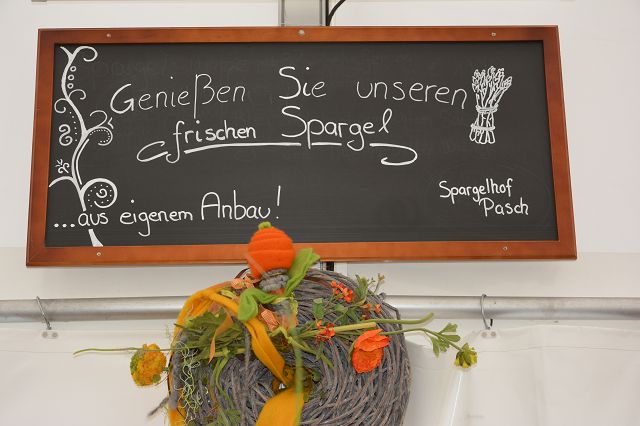 Genießen Sie unseren
frischen Spargel
...aus eigenem Anbau!
Spargelhof
Pasch